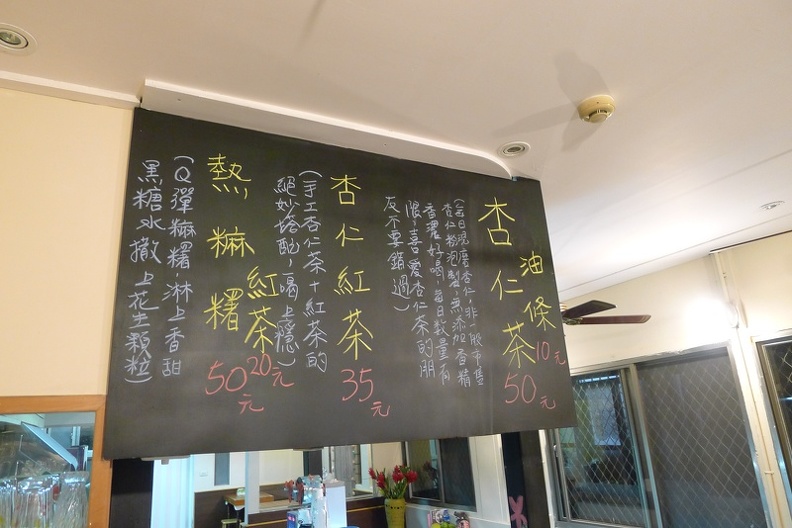 油條
10元
杏仁茶
50元
(每日現磨杏仁,非一般市售
杏仁粉泡製,無添加香精
香濃好喝,每日數量有
限,喜愛杏仁茶的朋
友不要錯過)
杏仁紅茶
35元
(手工杏仁茶+紅茶的
絕妙搭配,喝上癮)
紅茶
20元
熱麻糬
50元
(Q彈麻糬,淋上香甜
黑糖水撒上花生顆粒)